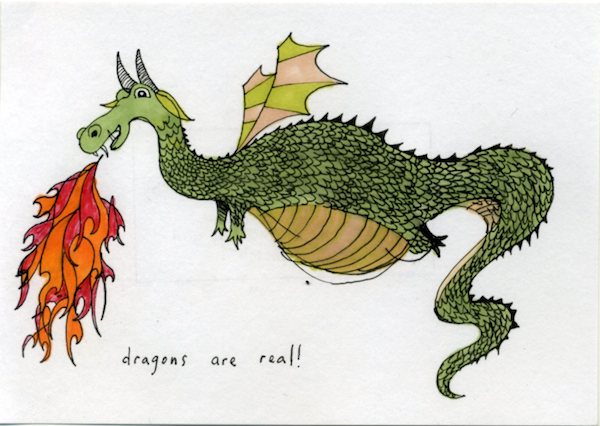 dragons are real!